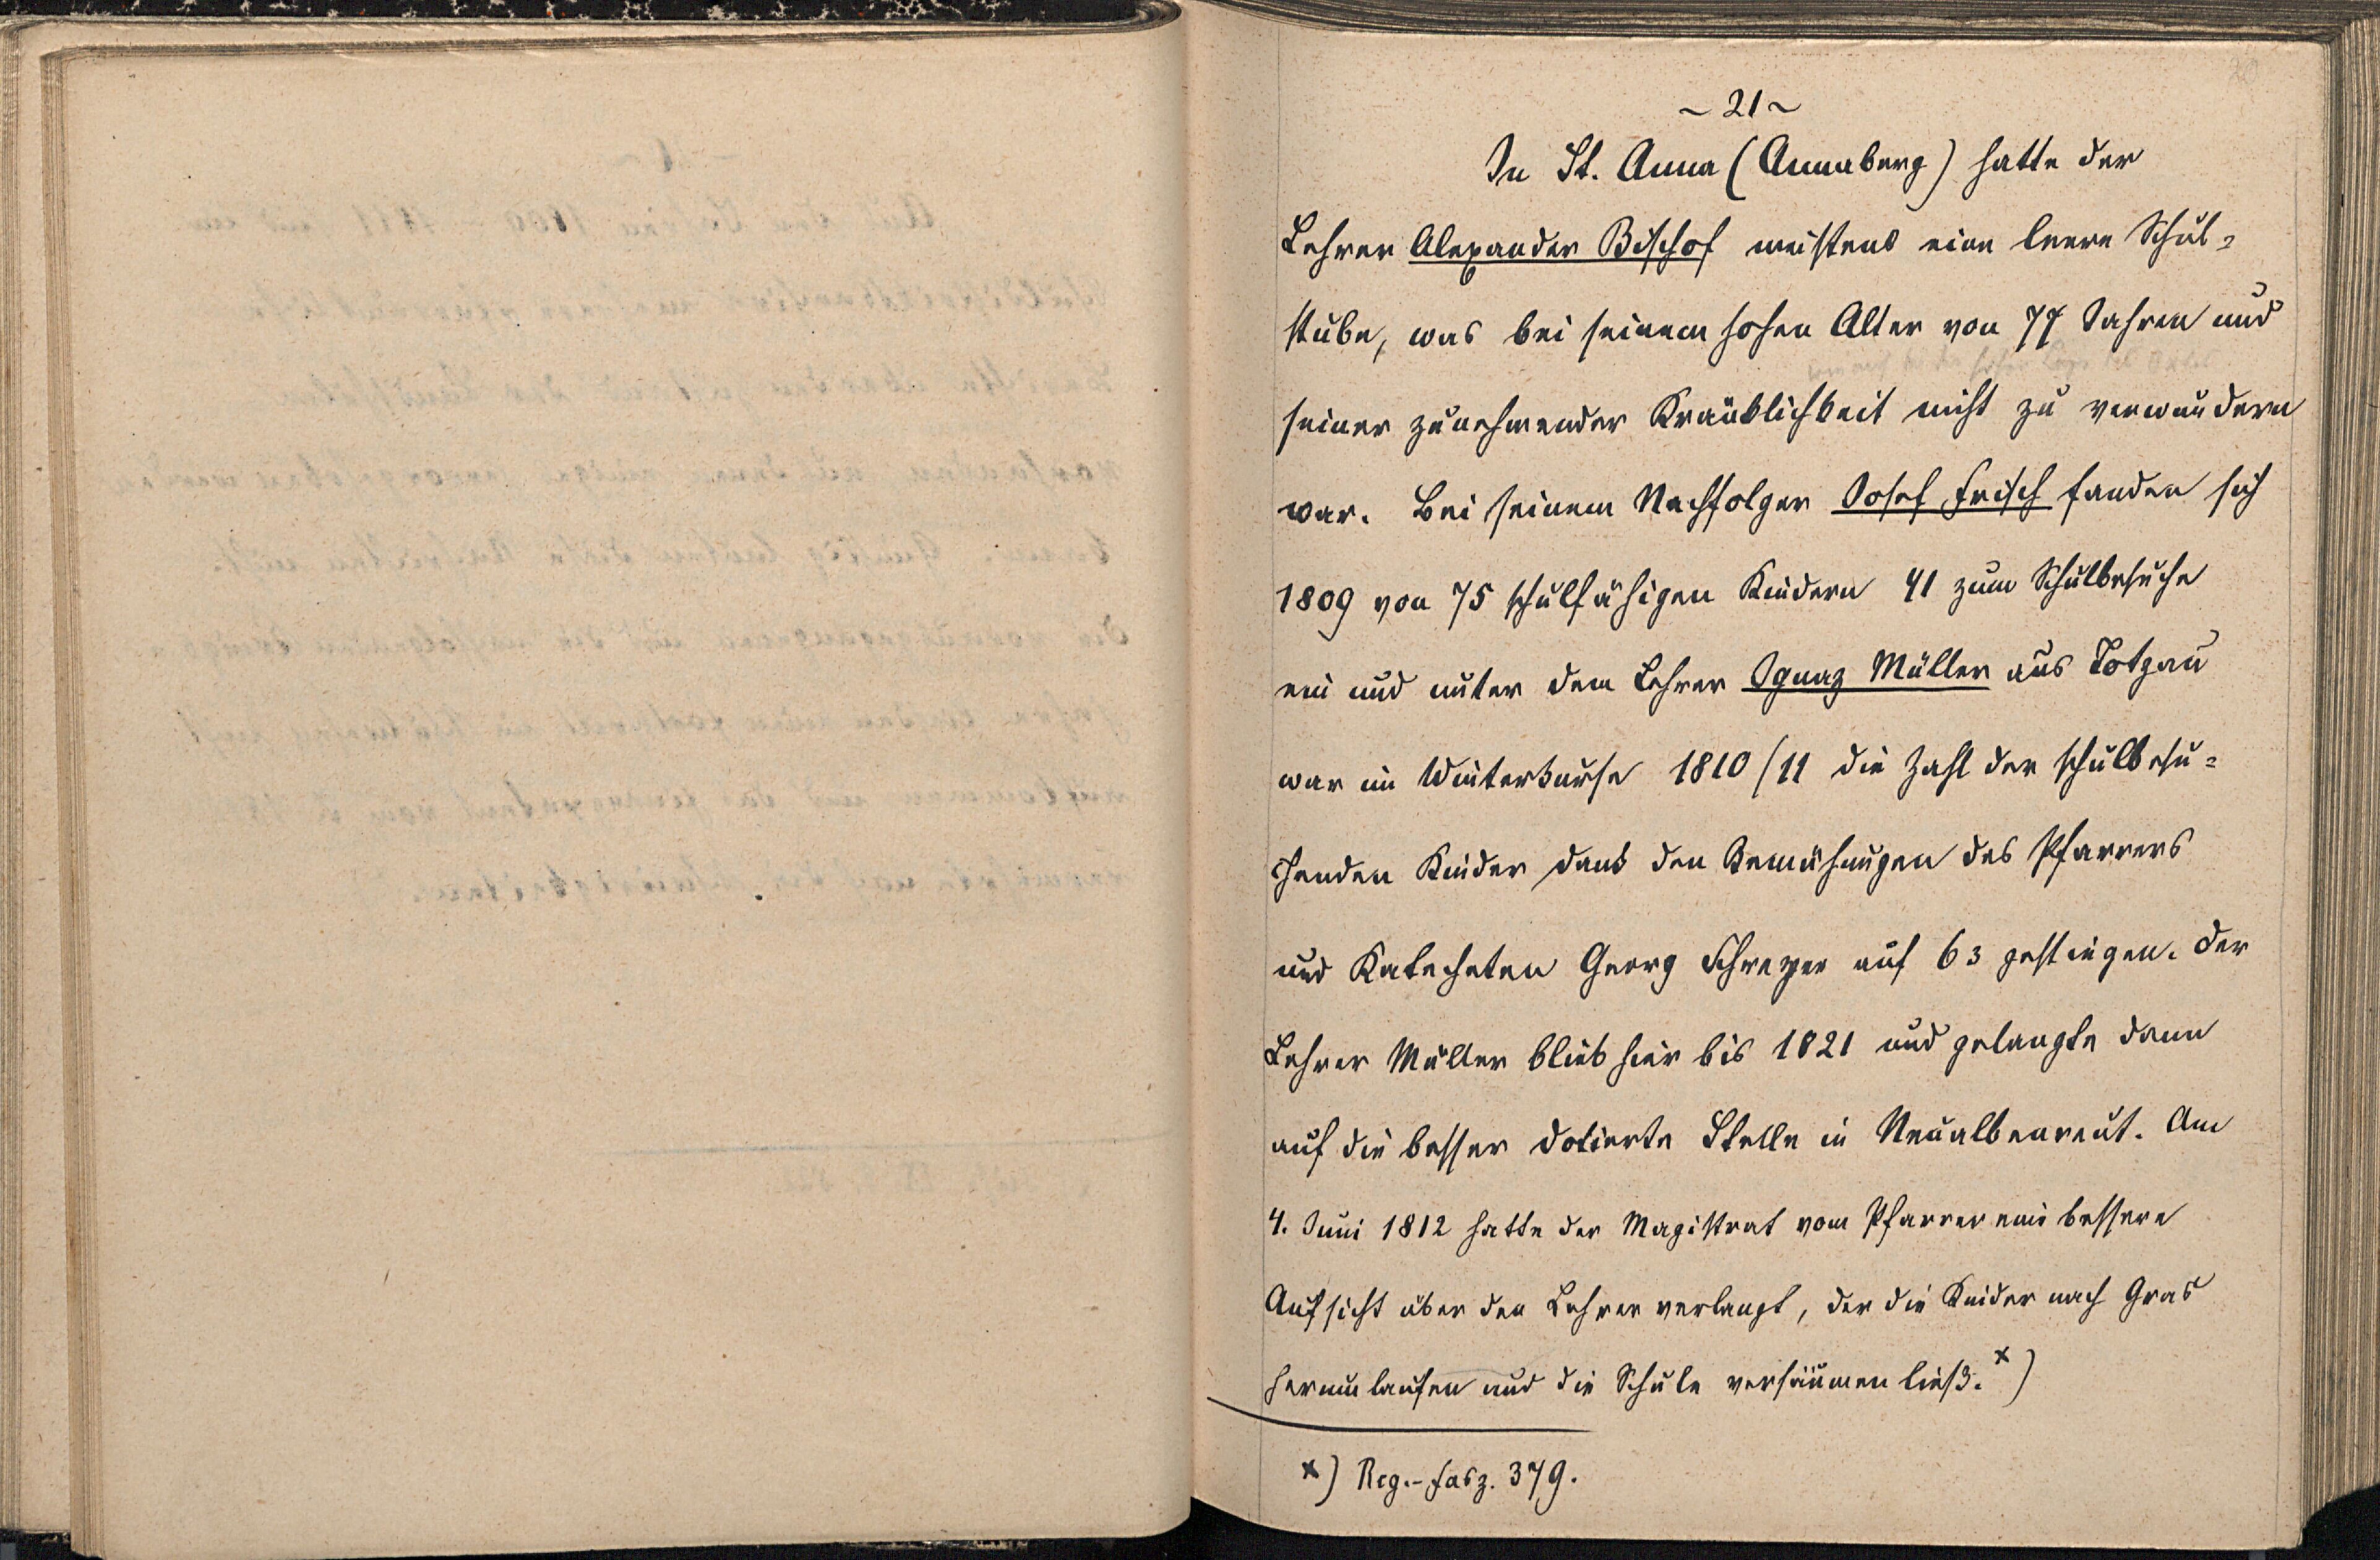 ~ 21 ~
In St. Anna (Annaberg) hatte der
Lehrer Alexander Bischof meistens eine leere Schul=
stube, was bei seinem hohen Alter von 77 Jahren und
seiner zunehmender Kränklichkeit nicht zu verwundern
war. Bei seinem Nachfolger Josef Frisch fanden sich
1809 von 75 schulfähigen Kindern 41 zum Schulbesuche
ein und unter dem Lehrer Ignaz Müller aus Totzau
war im Winterkurse 1810/11 die Zahl der schulbesu=
chenden Kinder dank den Bemühungen des Pfarrers
und Katecheten Georg Schreyer auf 63 gestiegen. Der
Lehrer Müller blieb hier bis 1821 und gelangte dann
auf die besser dotierte Stelle in Neualbenreut. Am
4. Juni 1812 hatte der Magistrat vom Pfarrer eine bessere
Aufsicht über den Lehrer verlangt, der die Kinder nach Gras
herumlaufen und die Schule versäumen ließ. x)
x) Reg.-Fasz. 379.